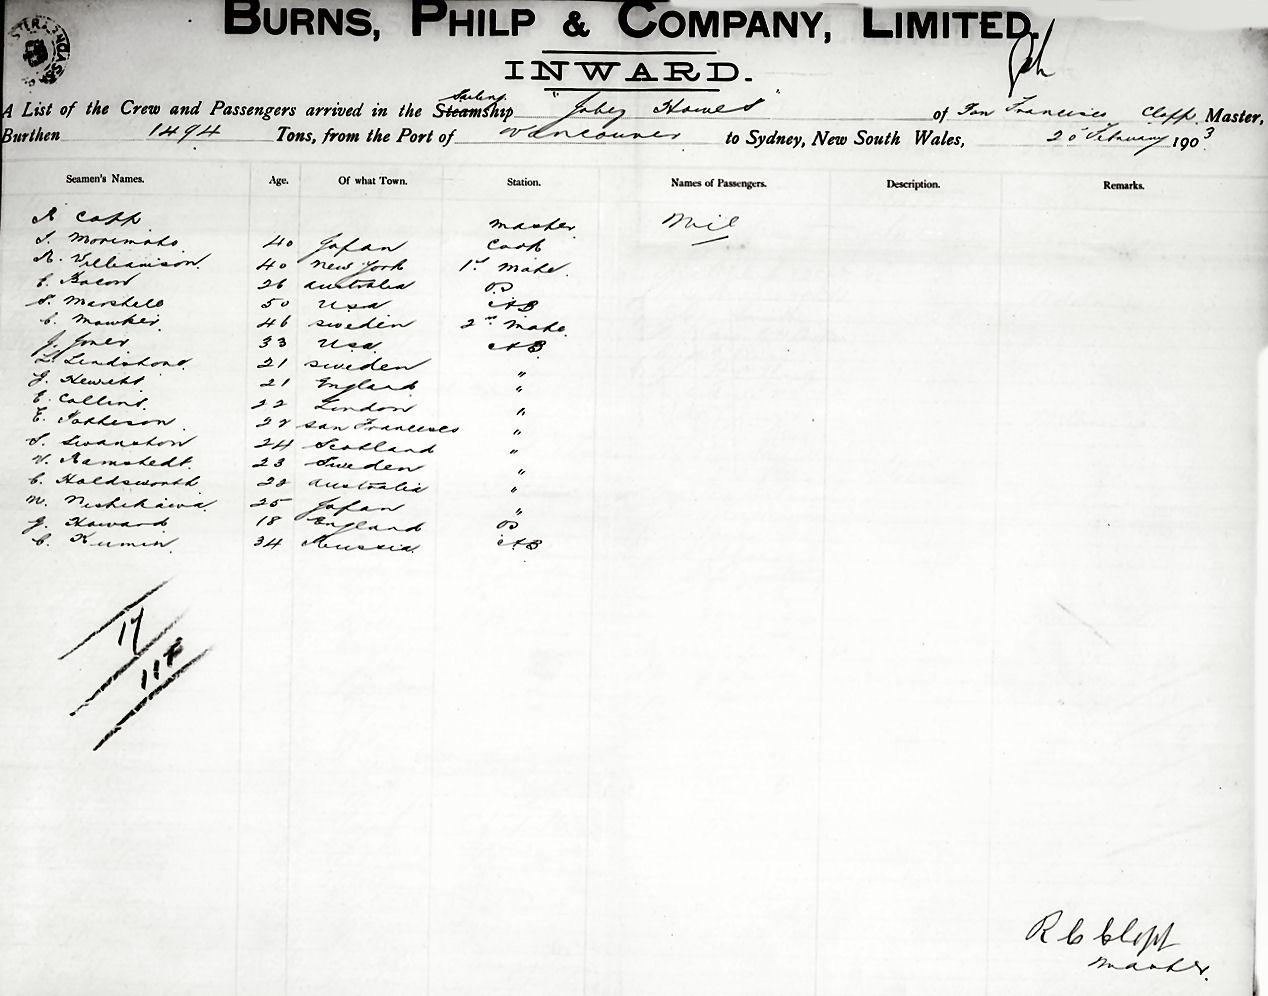 BURNS, PHILP & COMPANY, LIMITED.
INWARD.
A List of the Crew and Passengers arrived in the Steamship Sailing "Jabez Howes" of San Francisco Clapp Master,
Burthen 1494 Tons, from the Port of Vancouver to Sydney, New South Wales, 20 February 1903
Seamen's Names. Age. Of what Town. Station. Names of Passengers. Description. Remarks.
R Capp master Nil
S. Morimoto 40 Japan Cook
R. Williamson 40 New York 1st Mate
E. Bacon 26 Australia OS
S. Marshell 50 USA AB
C. 46 Sweden 2nd Mate
J. Jones 33 USA AB
L. Lindstone 21 Sweden "
J. Hewett 21 England "
E. Collins 22 London "
E. San Francisco "
S. Swanston 24 Scotland "
V. Ramstedt 23 Sweden "
C. Holdsworth Australia "
N. Nishikawa 25 Japan "
J. Howard 18 England OS
C. Kumin 34 Russia AB
17
R C Clapp
Master.